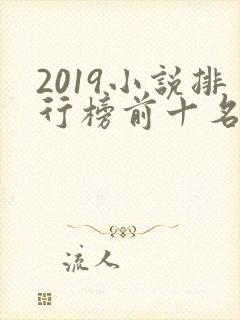 2019小説排
行榜前十名
流人